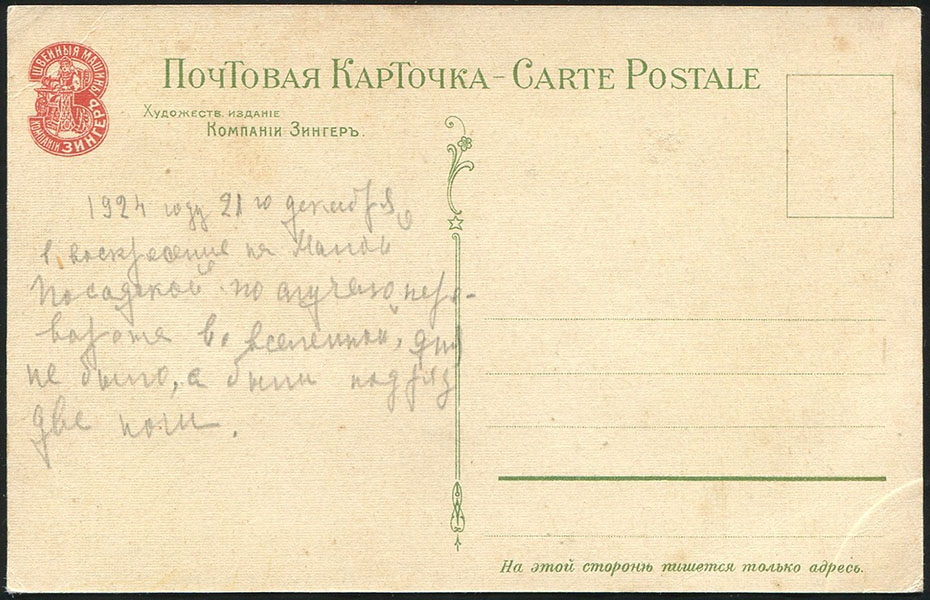 ШВЕЙНЫЯ МАШИНЫ
КОМПАНІИ ЗИНГЕРЪ
ПОЧТОВАЯ КАРТОЧКА – CARTE POSTALE
ХУДОЖЕСТВ. ИЗДАНІЕ
КОМПАНІИ ЗИНГЕРЪ.
1924 году 21 го декабря,
в воскресение на Малой
Посадской по случаю пере-
ворота во вселенной, дня
не было, а были подряд
две ночи.
На этой сторонѣ пишется только адресъ.